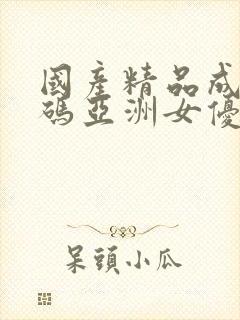 國產精品成
碼亞洲女優
呆頭小瓜